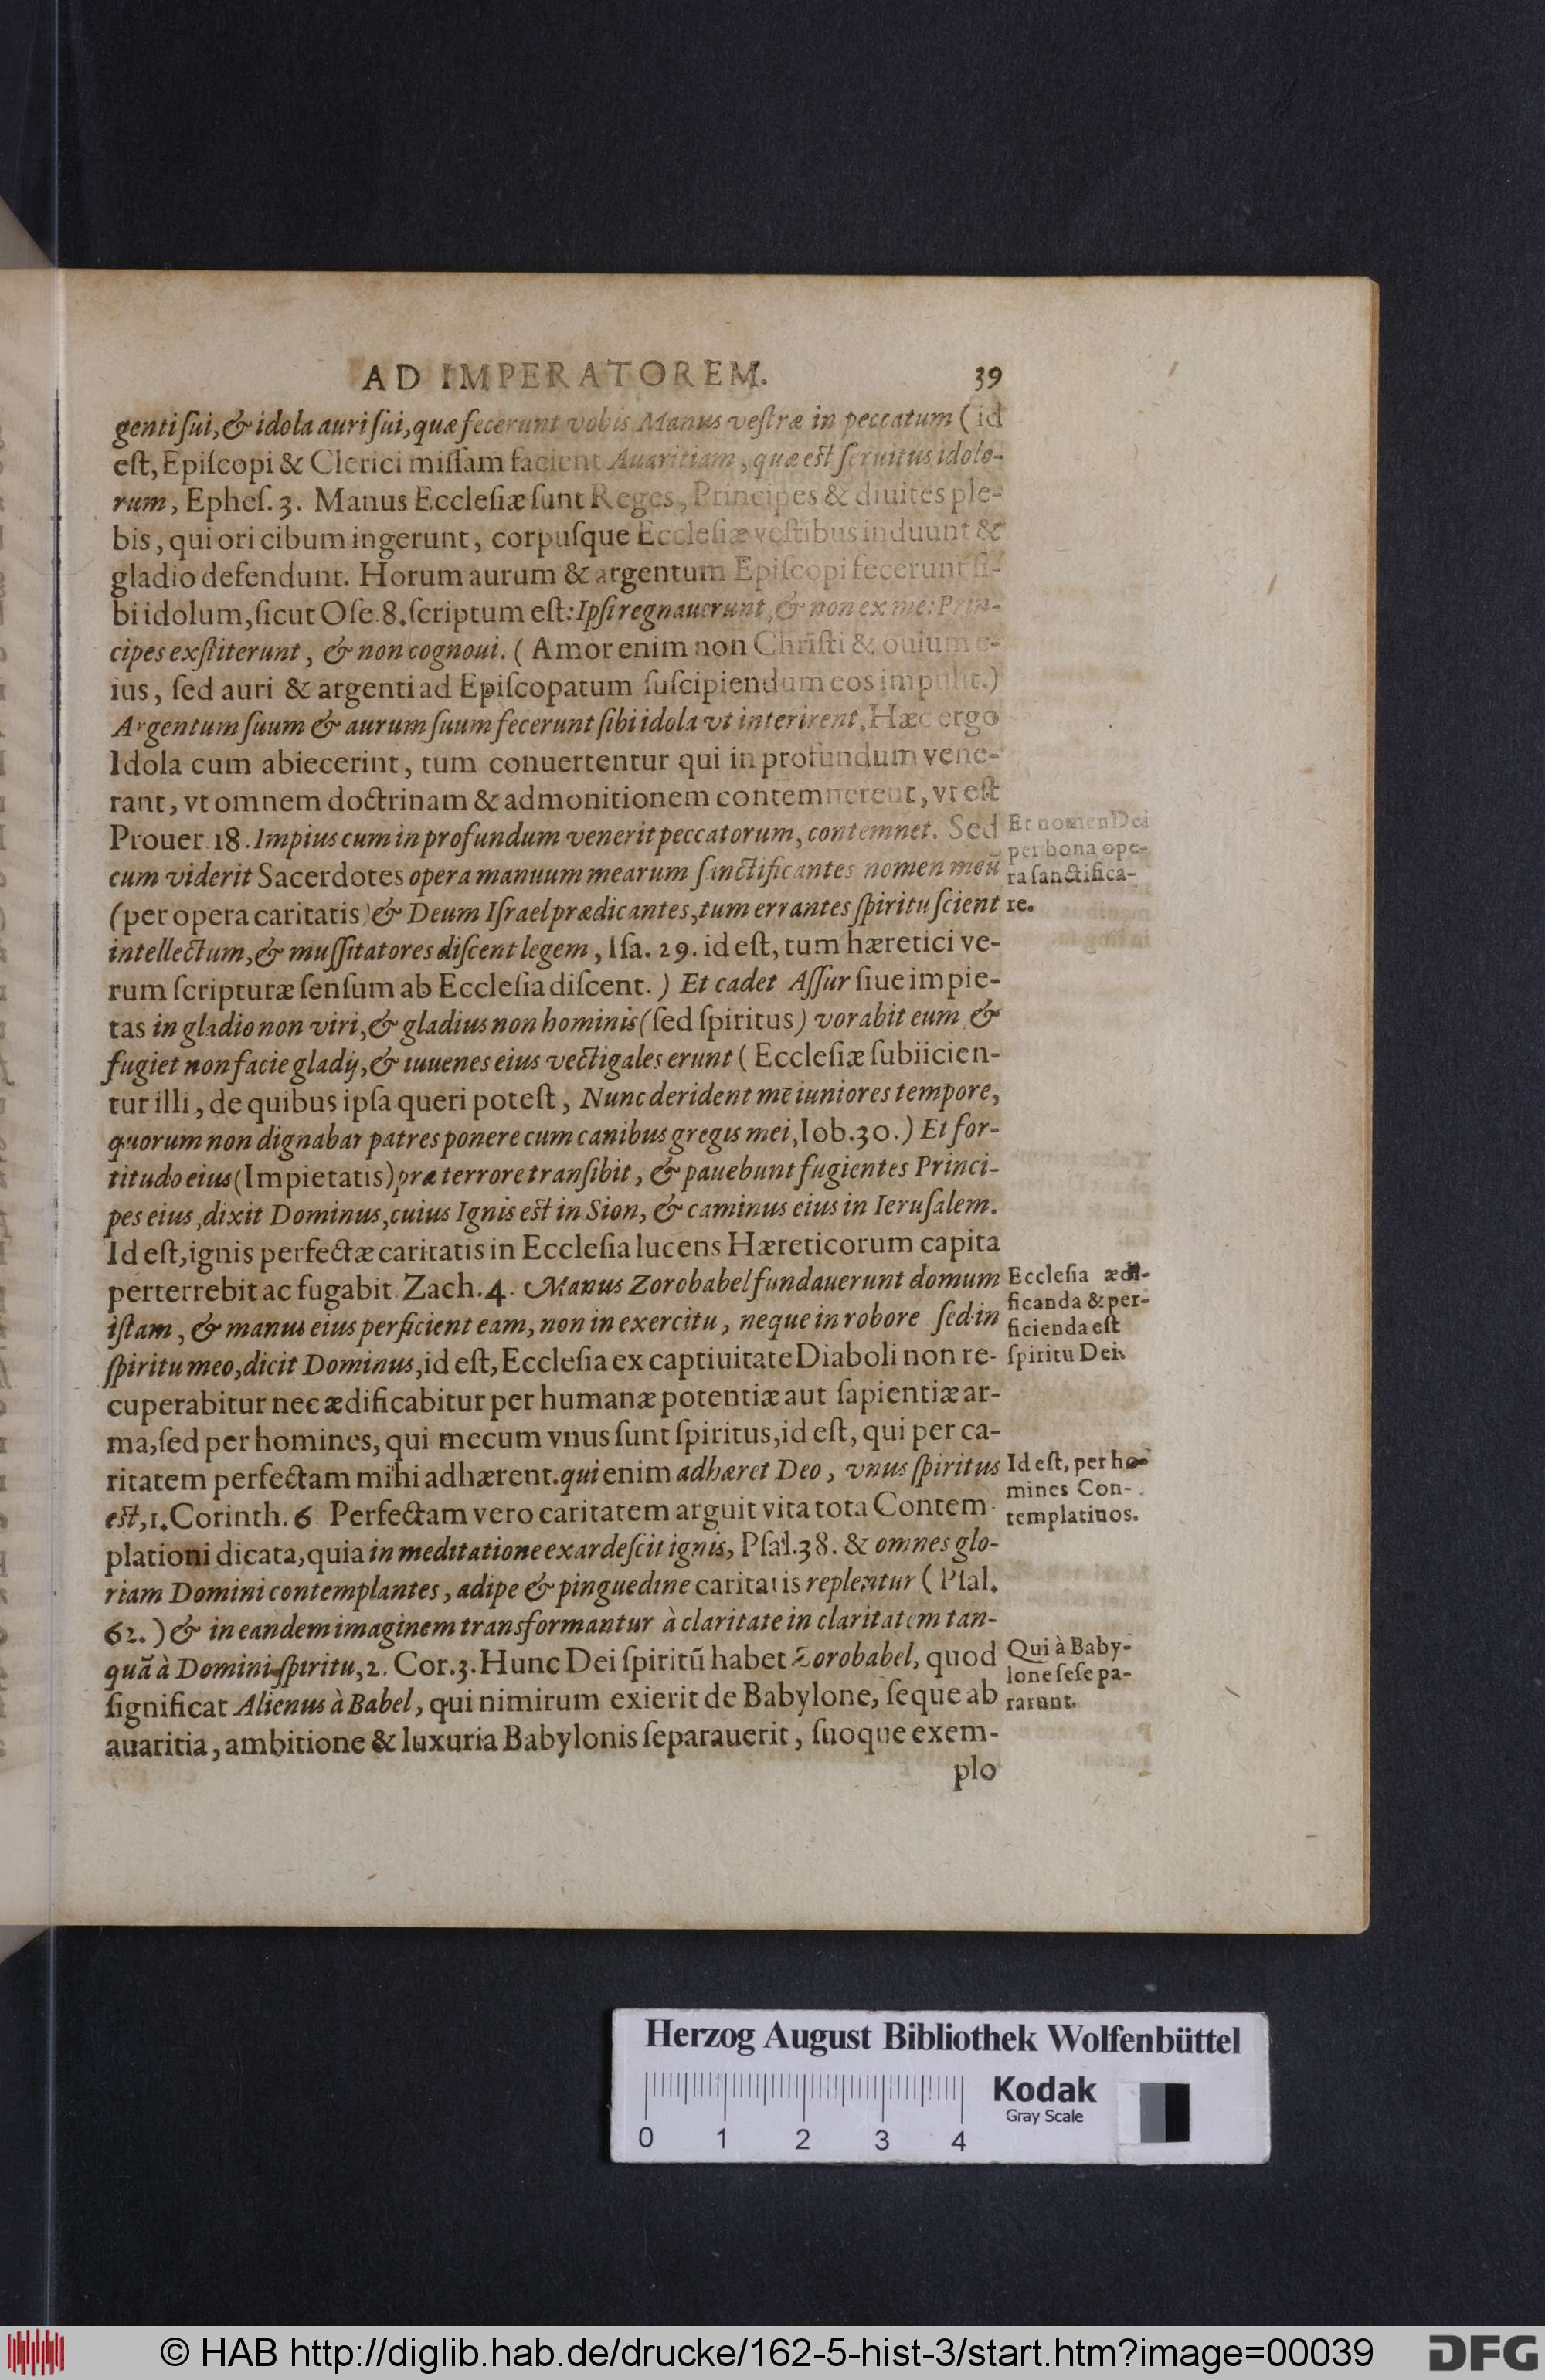 AD IMPERATOREM. 39
genti ſui, & idola auri ſui, quæ fecerunt vobis Manus veſtræ in peccatum (id
eſt, Epiſcopi & Clerici miſſam facient Auaritiam, quæ eſt ſeruitus idolo-
rum, Epheſ. 3. Manus Eccleſiæ ſunt Reges, Principes & diuites ple-
bis, qui ori cibum ingerunt, corpuſque Eccleſiæ veſtibus induunt &
gladio defendunt. Horum aurum & argentum Epiſcopi fecerunt ſi-
bi idolum, ſicut Oſe. 8. ſcriptum eſt: Ipſi regnauerunt, & non ex me: Prin-
cipes exſtiterunt, & non cognoui. (Amor enim non Chriſti & ouium e-
ius, ſed auri & argenti ad Epiſcopatum ſuſcipiendum eos impulit.)
Argentum ſuum & aurum ſuum fecerunt ſibi idola vt interirent. Hæc ergo
Idola cum abiecerint, tum conuertentur qui in profundum vene-
rant, vt omnem doctrinam & admonitionem contemnerent, vt eſt
Prouer. 18. Impius cum in profundum venerit peccatorum, contemnet. Sed
cum viderit Sacerdotes opera manuum mearum ſanctificantes nomen meū
(per opera caritatis) & Deum Iſrael prædicantes, tum errantes ſpiritu ſcient
intellectum, & muſſitatores diſcent legem, Iſa. 29. id eſt, tum hæretici ve-
rum ſcripturæ ſenſum ab Eccleſia diſcent.) Et cadet Aſſur ſiue impie-
tas in gladio non viri, & gladius non hominis (ſed ſpiritus) vorabit eum &
fugiet non facie gladij, & iuuenes eius vectigales erunt (Eccleſiæ ſubiicien-
tur illi, de quibus ipſa queri poteſt, Nunc derident me iuniores tempore,
quorum non dignabar patres ponere cum canibus gregis mei, Iob. 30.) Et for-
titudo eius (Impietatis) præ terrore tranſibit, & pauebunt fugientes Princi-
pes eius, dixit Dominus, cuius Ignis eſt in Sion, & caminus eius in Ieruſalem.
Id eſt, ignis perfectæ caritatis in Eccleſia lucens Hæreticorum capita
perterrebit ac fugabit. Zach. 4. Manus Zorobabel fundauerunt domum
iſtam, & manus eius perficient eam, non in exercitu, neque in robore ſed in
ſpiritu meo, dicit Dominus, id eſt, Eccleſia ex captiuitate Diaboli non re-
cuperabitur nec ædificabitur per humanæ potentiæ aut ſapientiæ ar-
ma, ſed per homines, qui mecum vnus ſunt ſpiritus, id eſt, qui per ca-
ritatem perfectam mihi adhærent. qui enim adhæret Deo, vnus ſpiritus
eſt, 1. Corinth. 6. Perfectam vero caritatem arguit vita tota Contem-
plationi dicata, quia in meditatione exardeſcit ignis, Pſal. 38. & omnes glo-
riam Domini contemplantes, adipe & pinguedine caritatis replentur (Pſal.
62.) & in eandem imaginem transformantur à claritate in claritatem tan-
quā à Domini ſpiritu, 2. Cor. 3. Hunc Dei ſpiritū habet Zorobabel, quod
ſignificat Alienus à Babel, qui nimirum exierit de Babylone, ſeque ab
auaritia, ambitione & luxuria Babylonis ſeparauerit, ſuoque exem-
plo
Et nomen Dei
per bona ope-
ra ſanctifica-
re.
Eccleſia ædi-
ficanda & per-
ficienda eſt
ſpiritu Dei.
Id eſt, per ho-
mines Con-
templatiuos.
Qui à Baby-
lone ſeſe pa-
rarunt.
Herzog August Bibliothek Wolfenbüttel
Kodak
Gray Scale
0 1 2 3 4
© HAB http://diglib.hab.de/drucke/162-5-hist-3/start.htm?image=00039
DFG